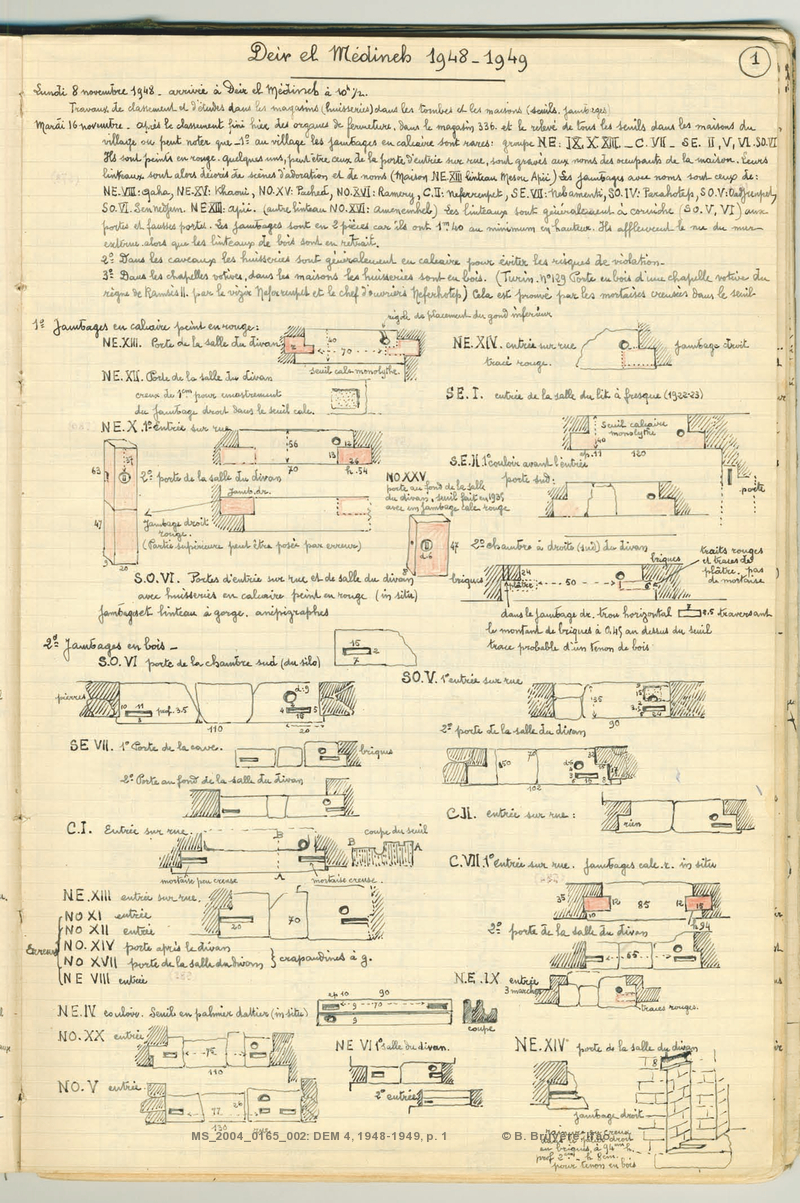 Deir el Médineh 1948-1949
1
Lundi 8 novembre 1948 - arrivée à Deir el Médineh à 10h ½.
Travaux de classement et d'études dans les magasins (huisseries) dans les tombes et les maisons (seuils, jambages)
Mardi 16 novembre - après le classement fini hier des organes de fermeture, dans le magasin 336. et le relevé de tous les seuils dans les maisons du
village on peut noter que -1º au village les jambages en calcaire sont rares: groupe NE: IX, X, XIII. - C. VII - SE. II, V, VI. SO.VI
Ils sont peints en rouge. quelques uns, peut être ceux de la porte d'entrée sur rue, sont gravés aux noms des occupants de la maison. Leurs
linteaux sont alors décorés de scènes d'adoration et de noms (Maison NE.XIII linteau Mesou Apii) Les jambages avec noms sont ceux de:
NE.VIII: gaha, NE.XV: Khaoui, NO.XV: Pached, NO.XVI: Ramery, C.II: Neferrenpet, SE.VII: Nebamenti, SO.IV: Parahotep, SO.V:
SO.VI. Sennedjem. NE.XIII: apii. (autre linteau NO.XVI: amenemheb) Les linteaux sont généralement à corniche (SO.V, VI) aux
portes et fausses portes. Les jambages sont en 2 pièces car ils ont 1m40 au minimum en hauteur. Ils affleurent le nu du mur
extérieur alors que les linteaux de bois sont en retrait.
2º Dans les caveaux les huisseries sont généralement en calcaire pour éviter les risques de violation.
3º Dans les chapelles votives, dans les maisons les huisseries sont en bois. (Turin. Nº129 Porte en bois d'une chapelle votive du
règne de Ramsès II. par le vizir Neferrenpet et le chef d'ouvriers Neferhotep) Cela est prouvé par les mortaises creusées dans le seuil.
rigole de placement du gond inférieur
1º Jambages en calcaire peint en rouge:
NE.XIII. Porte de la salle du divan
40
70
seuil calc. monolythe.
NE.XIV. entrée sur rue
tracé rouge.
jambage droit
NE.XII. Porte de la salle du divan
creux de 1cm pour encastrement
du jambage droit dans le seuil calc.
SE.I. entrée de la salle du lit à fresque (1922-23)
NE.X. 1º entrée sur rue
56
70
13
26
h.54
Seuil calcaire
monolythe
40
ep.11
120
63
47
20
2º porte de la salle du divan
jamb. dr.
Jambage droit
rouge.
(Partie supérieure peut être posée par erreur)
NO XXV
porte au fond de la salle
du divan, seuil fait en 1935
avec un jambage calc rouge
47
S.E.II. 1º couloir avant l'entrée
porte sud:
porte
2º chambre à droite (sud) du divan
briques
briques
24
plâtre
50
traits rouges
et traces de
plâtre. pas
de mortaise
dans le jambage dr. trou horizontal 8.5 traversant
le montant de briques à 0.45 au dessus du seuil
trace probable d'un tenon de bois
S.O.VI. Portes d'entrée sur rue et de salle du divan
avec huisseries en calcaire peint en rouge (in situ)
jambages et linteau à gorge. anépigraphes
2º Jambages en bois -
S.O.VI porte de la chambre sud (du silo)
15
2
7
pierres
10
11
prof. 3.5
110
20
SO.V. 1º entrée sur rue
35
90
SE VII. 1º Porte de la cave.
briques
2º porte de la salle du divan
50
102
2º Porte au fond de la salle du divan
C.II. entrée sur rue:
rien
C.I. Entrée sur rue.
B
A
coupe du seuil
B
A
mortaise peu creuse
mortaise creuse.
C.VII. 1º entrée sur rue. jambages calc. r. in situ
35
10
85
12
15
h.94
NE.XIII entrée sur rue.
20
70
Erreur
NO XI entrée
NO XII entrée
NO. XIV porte après le divan
NO XVII porte de la salle du divan
crapaudines à g.
NE VIII entrée
2º porte de la salle du divan
65
N.E.IX entrée
3 marches
traces rouges.
NE.IV couloir. Seuil en palmier dattier (in situ)
ep 10
90
70
coupe
NO.XX entrée
75
110
NE VI 1º salle du divan.
2º entrée
NE.XIV porte de la salle du divan
18
NO.V entrée
77
jambage droit
en briques, à 94cm h.
pour tenon en bois
MS_2004_0165_002: DEM 4, 1948-1949, p. 1